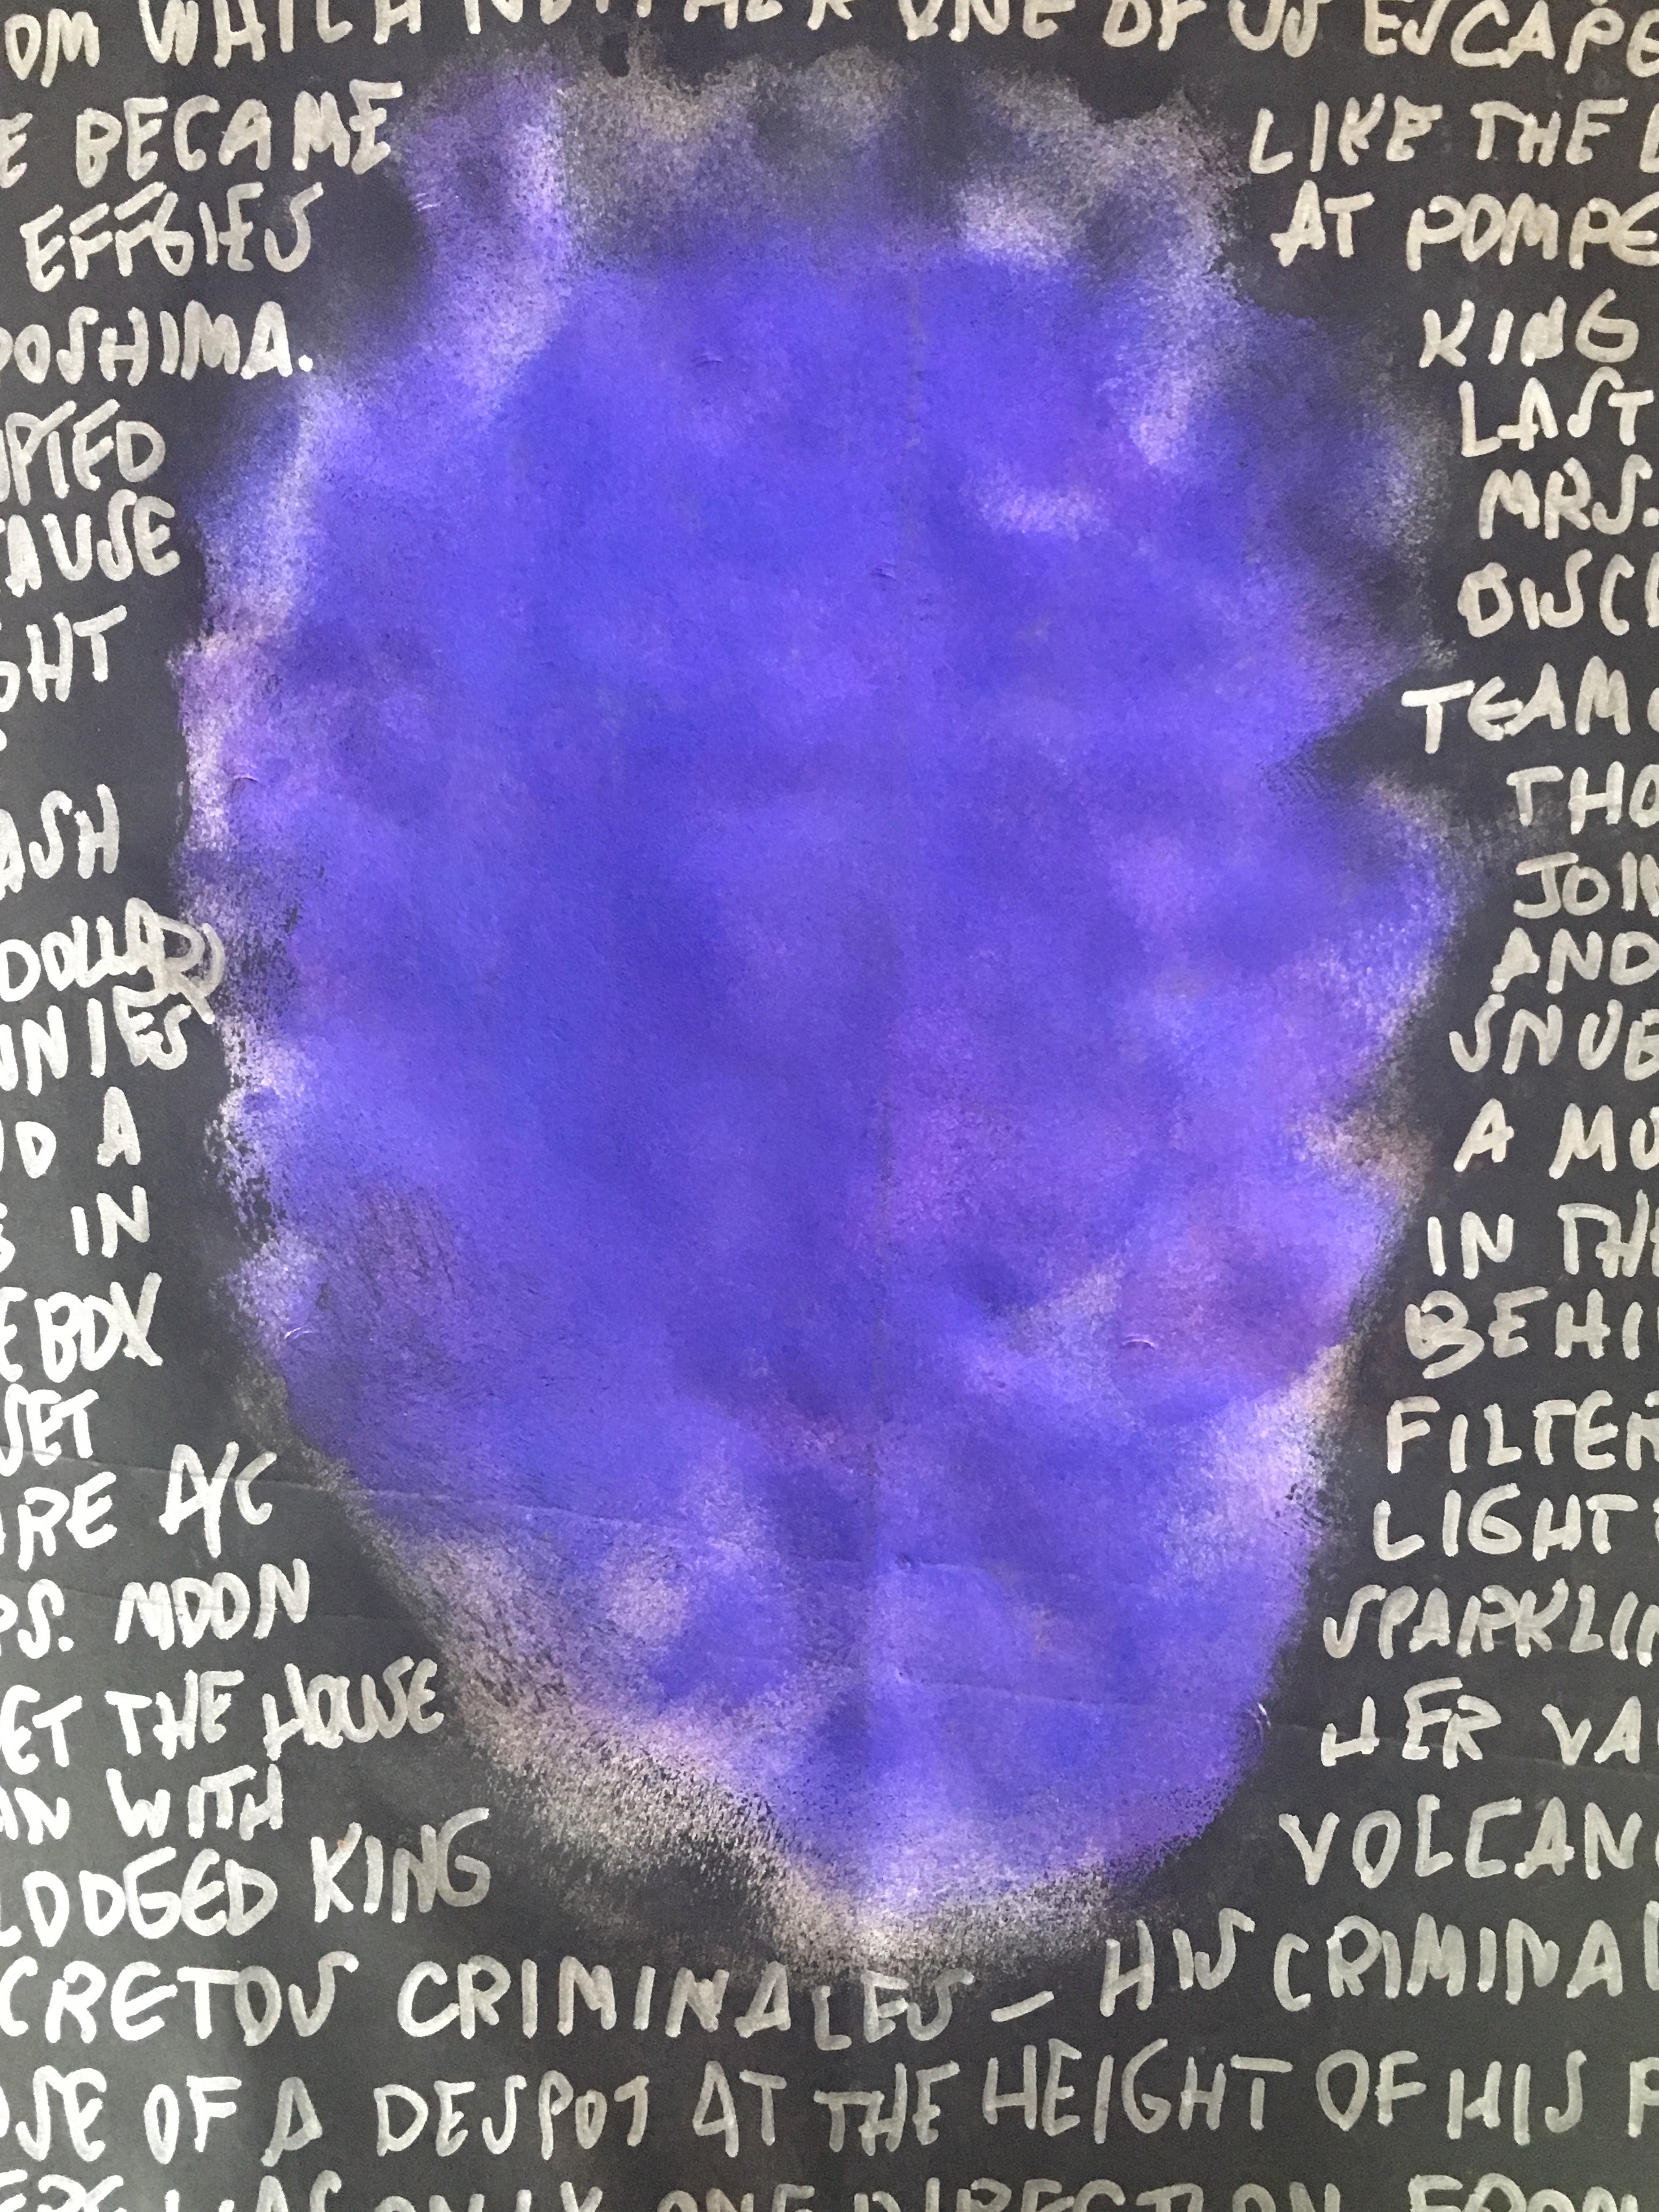 OM WHICH NEITHER ONE OF US ESCAPE
E BECAME LIKE THE
EFFGIES AT POMPE
OSHIMA. KING
UPTED LAST
AUSE MRS.
GHT DISC
TEAM
THO
ASH JOIN
DOLLAR AND
NNIES SNUB
ND A A MU
IN IN THE
EBOX BEHI
SET FILTER
ARE A/C LIGHT
PS. MOON SPARKLIN
ET THE HOUSE HER VA
AN WITH VOLCAN
LODGED KING
CRETOS CRIMINALES – HIS CRIMINAL
OSE OF A DESPOT AT THE HEIGHT OF HIS P
ERE WAS ONLY ONE DIRECTION